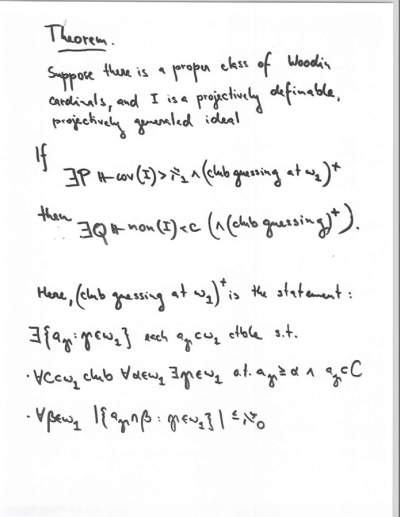 Theorem.
Suppose there is a proper class of Woodin
cardinals, and I is a projectively definable,
projectively generated ideal
If
∃P ⊩ cov(I) > ℵ₁ ∧ (club guessing at ω₁)⁺
then
∃Q ⊩ non(I) < c (∧ (club guessing)⁺).
Here, (club guessing at ω₁)⁺ is the statement:
∃{a_γ : γ∈ω₁} each a_γ ⊂ ω₁ ctble s.t.
· ∀C⊂ω₁ club ∀α∈ω₁ ∃γ∈ω₁ s.t. a_γ ≥ α ∧ a_γ ⊂ C
· ∀β∈ω₁ |{a_γ ∩ β : γ∈ω₁}| ≤ ℵ₀